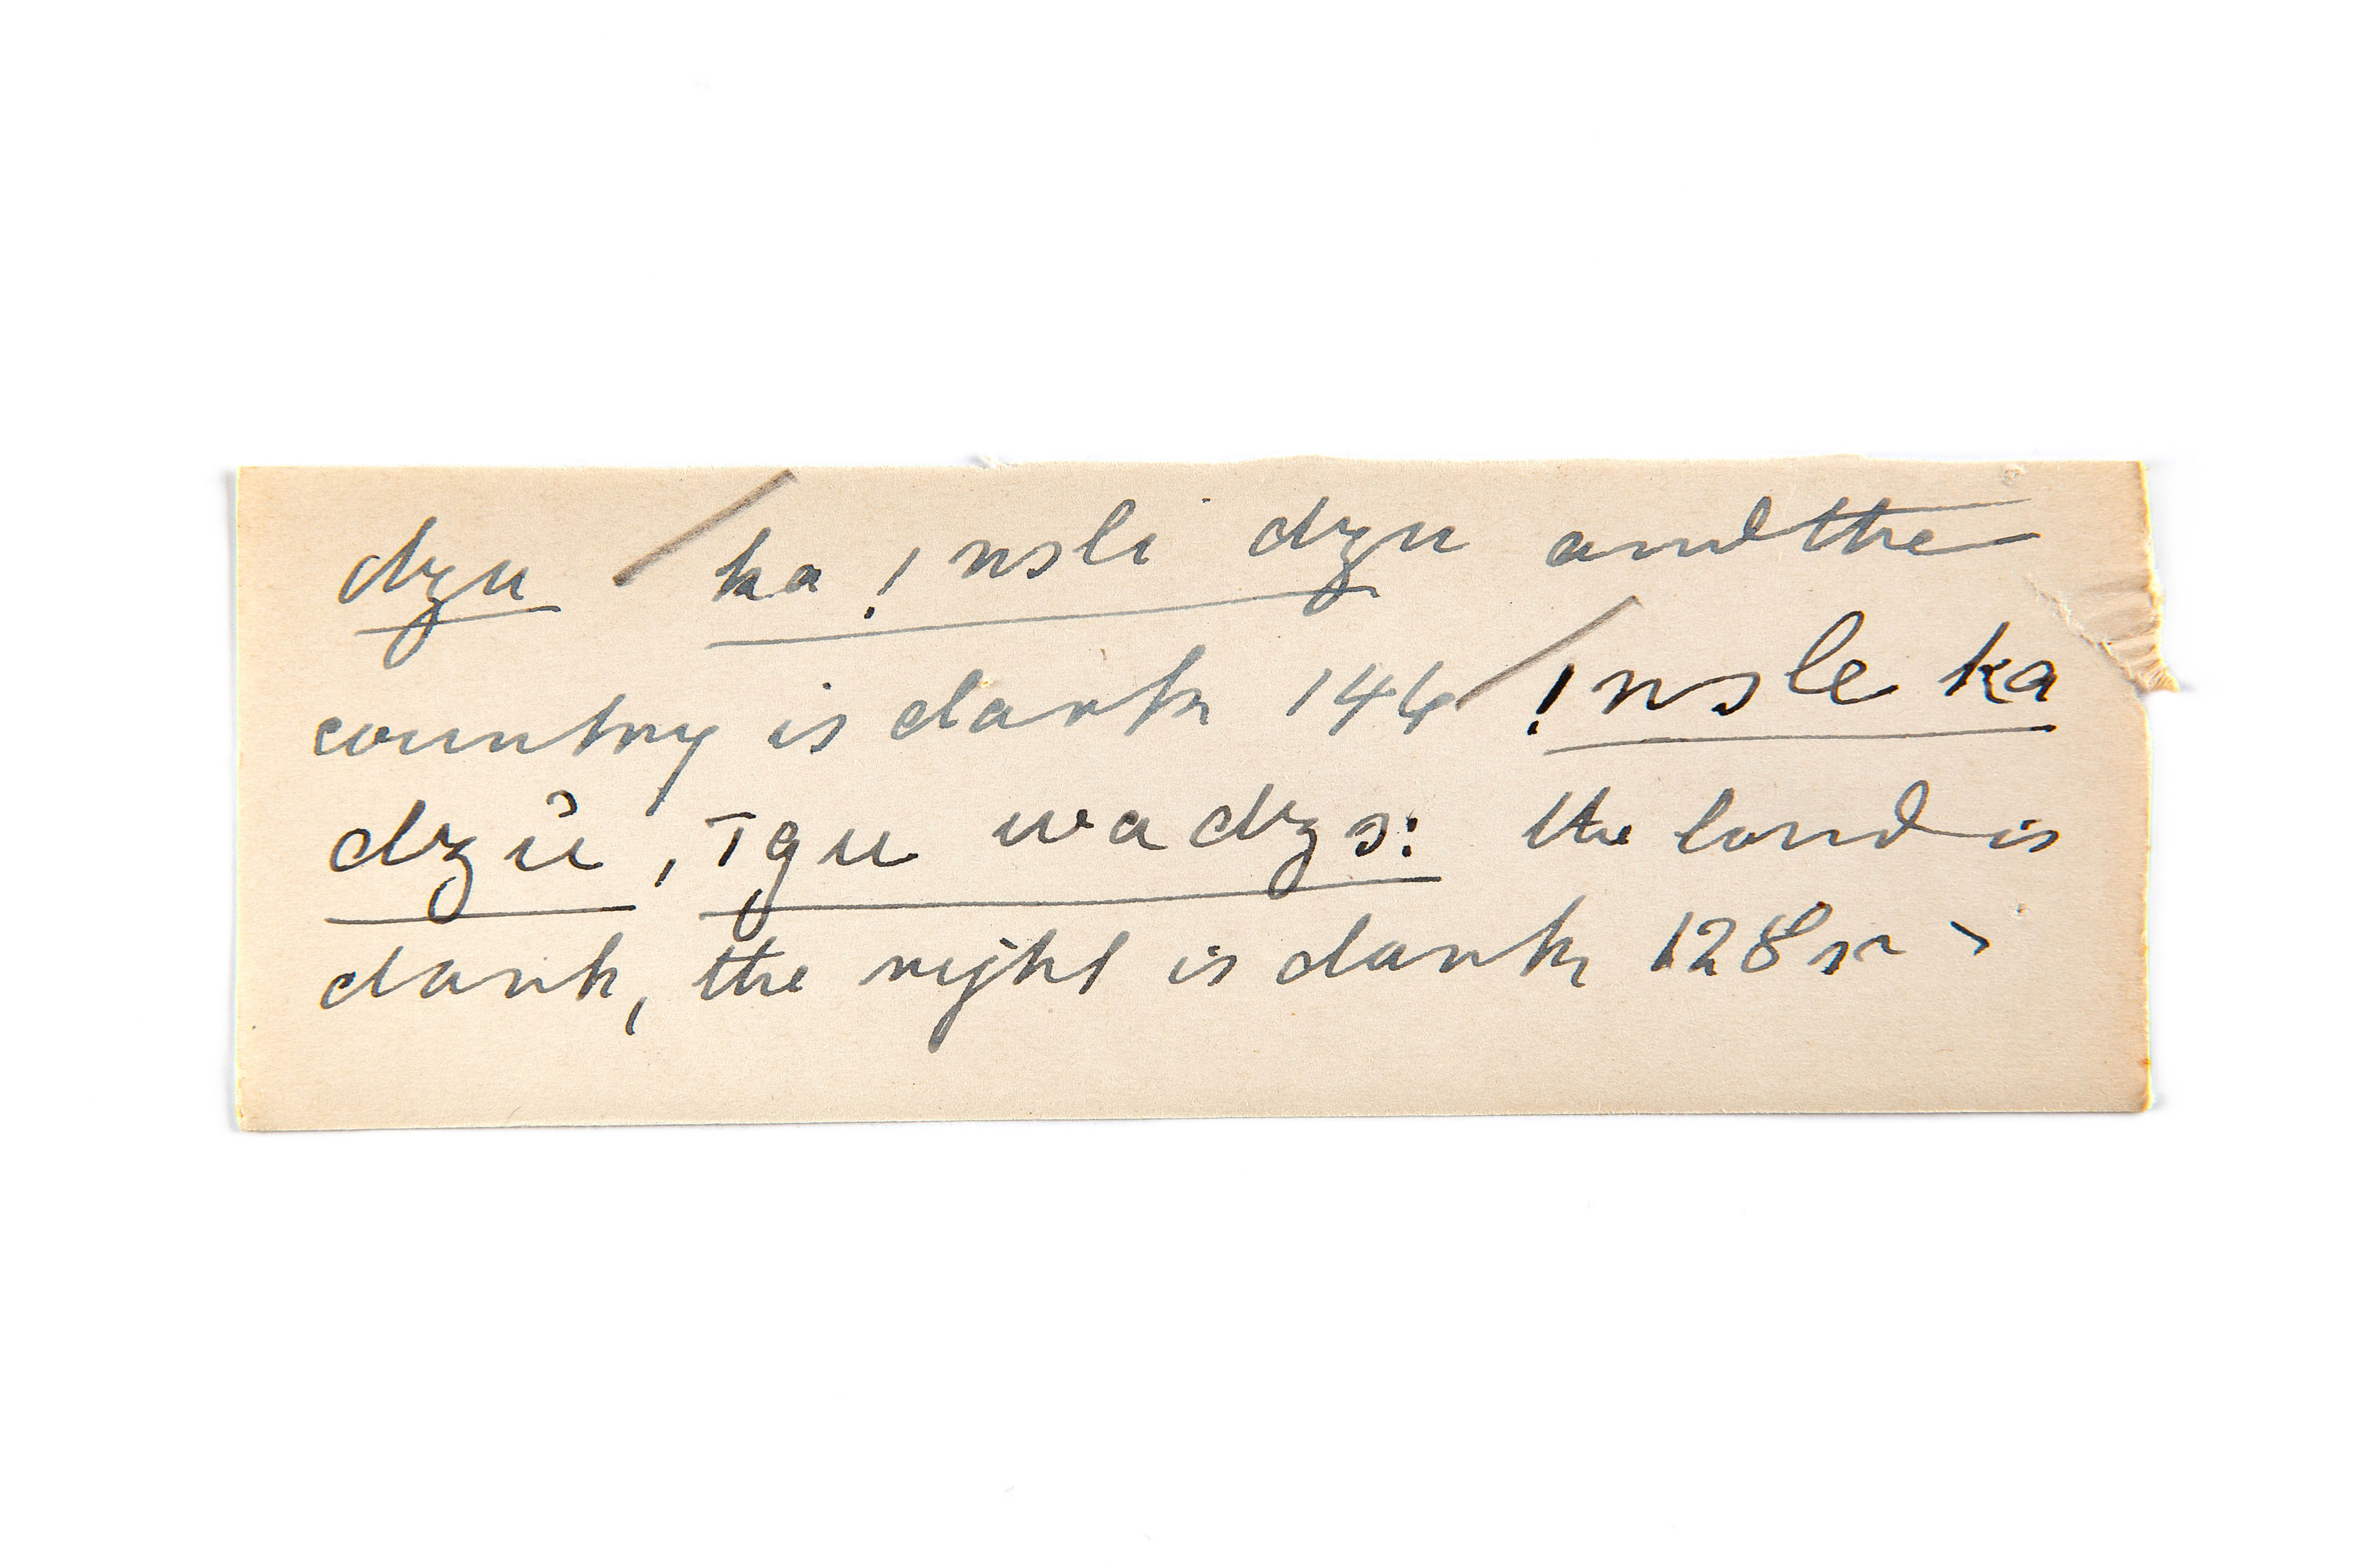 dzu / ka !nsli dzu and the
country is dark 144 / !nsle ka
dzŭ, īgu wa dzs: the land is
dark, the night is dark 128